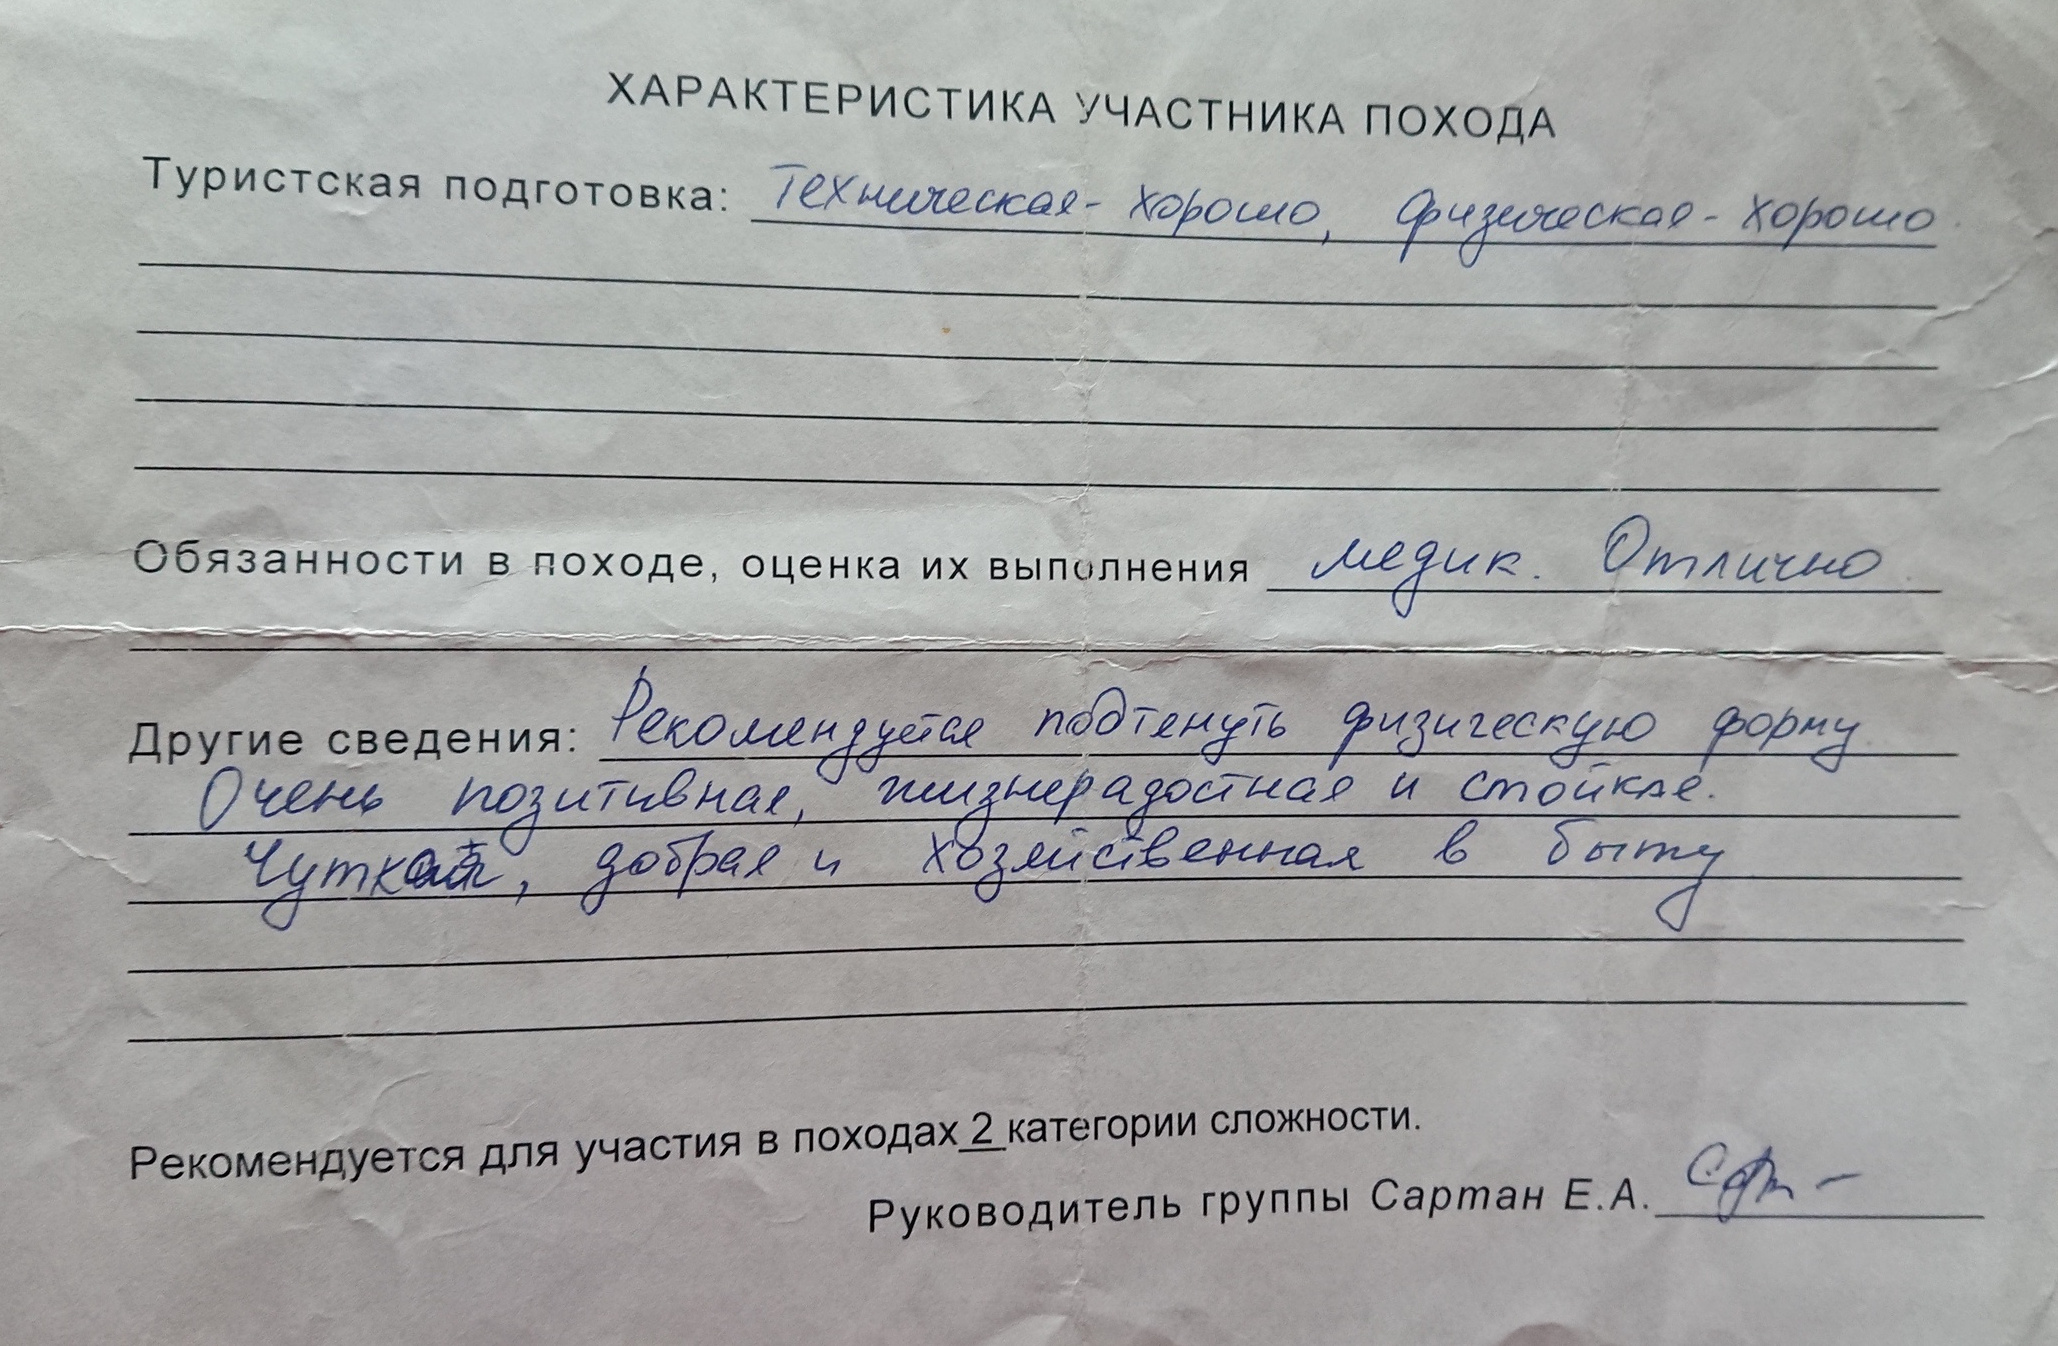 ХАРАКТЕРИСТИКА УЧАСТНИКА ПОХОДА
Туристская подготовка: Техническая - хорошо, физическая - хорошо.
Обязанности в походе, оценка их выполнения медик. Отлично.
Другие сведения: Рекомендуется подтянуть физическую форму
Очень позитивная, жизнерадостная и стойкая.
Чуткая, добрая и хозяйственная в быту
Рекомендуется для участия в походах 2 категории сложности.
Руководитель группы Сартан Е.А.